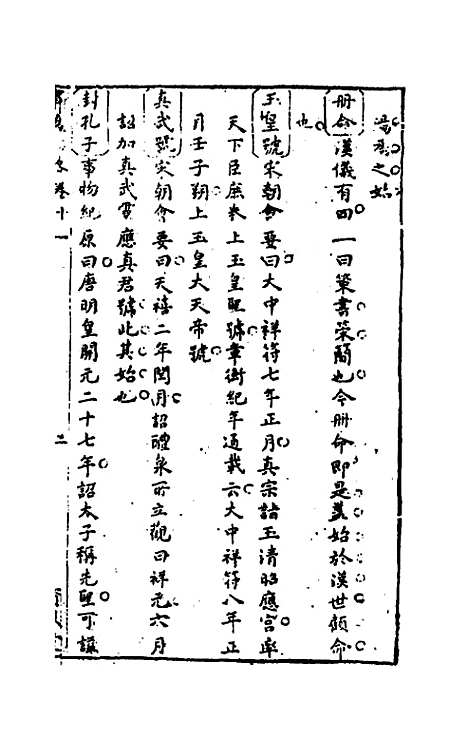 湯為之始
冊命漢儀有四一曰策書策簡也今冊命即是蓋始於漢世顧命
也
玉皇號宋朝會要曰大中祥符七年正月真宗詣玉清昭應宮率
天下臣庶奉上玉皇聖號章衡紀年通載云大中祥符八年正
月壬子朔上玉皇大天帝號
真武號宋朝會要曰天禧二年閏月詔醴泉所立觀曰祥元六月
詔加真武靈應真君號此其始也
封孔子事物紀原曰唐明皇開元二十七年詔太子稱先聖可諡
卷十一 二